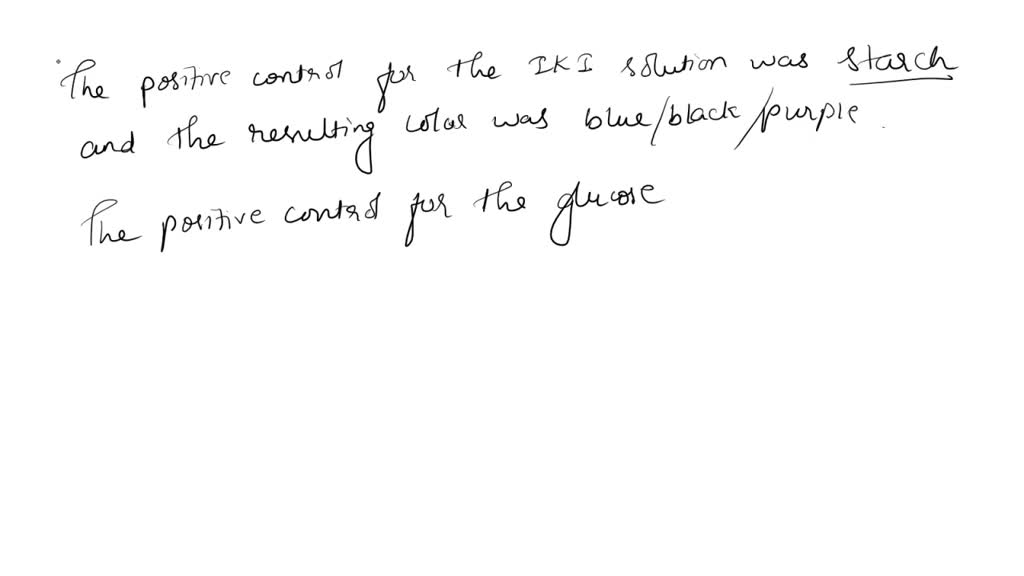 The positive control for the IKI solution was starch
and the resulting color was blue/black/purple.
The positive control for the glucose